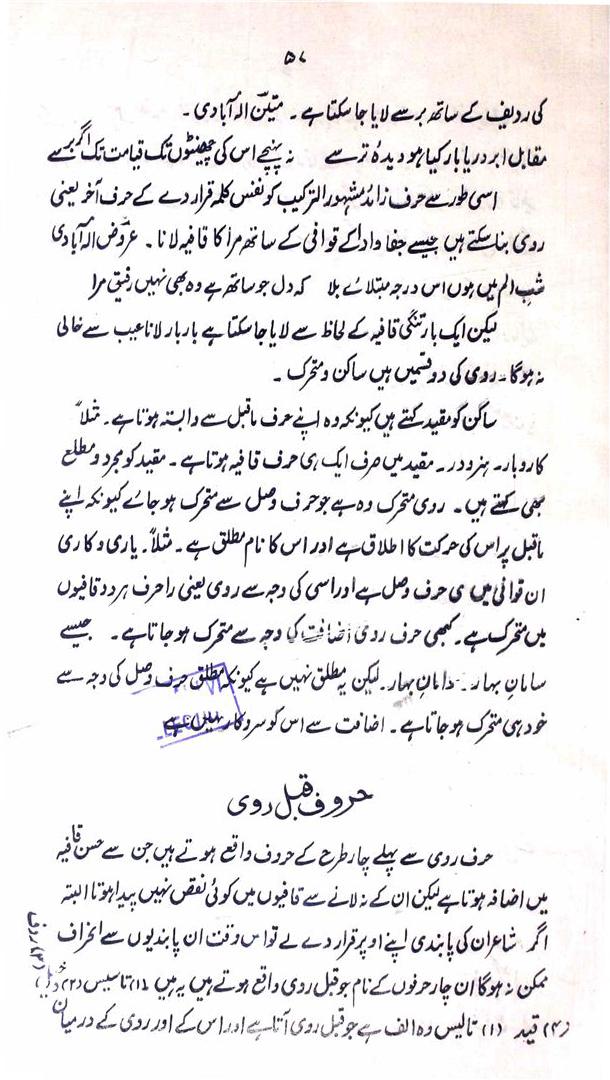 ۵۷
کی ردیف کے ساتھ بر سے لایا جا سکتا ہے ۔ متینؔ الہ آبادی ۔
مقابل ابر دریا بار کیا ہو دیدہ تر سے نہ پہنچے اس کی چھینٹوں تک قیامت تک اگر برسے
اسی طور سے حرف زائد مشہور الترکیب کو نفس کلمہ قرار دے کے حرف آخر یعنی
روی بنا سکتے ہیں جیسے جفا و ادا کے قوافی کے ساتھ مرا کا قافیہ لانا ۔ عروض الہ آبادی
شب الم میں ہوں اس درجہ مبتلائے بلا کہ دل جو ساتھ ہے وہ بھی نہیں رفیق مرا
لیکن ایک بار تنگی قافیہ کے لحاظ سے لایا جا سکتا ہے بار بار لانا عیب سے خالی
نہ ہوگا ۔ روی کی دو قسمیں ہیں ساکن و متحرک ۔
ساکن کو مقید کہتے ہیں کیونکہ وہ اپنے حرف ماقبل سے وابستہ ہوتا ہے ۔ مثلاً
کار و بار ۔ ہنر و در ۔ مقید میں صرف ایک ہی حرف قافیہ ہوتا ہے ۔ مقید کو مجرد و مطلع
بھی کہتے ہیں ۔ روی متحرک وہ ہے جو حرف وصل سے متحرک ہو جائے کیونکہ اپنے
ماقبل پر اس کی حرکت کا اطلاق ہے اور اس کا نام مطلق ہے ۔ مثلاً ۔ یاری و کاری
ان قوافی میں ی حرف وصل ہے اور اسی کی وجہ سے روی یعنی را حرف ہر دو قافیوں
میں متحرک ہے ۔ کبھی حرف روی اضافت کی وجہ سے متحرک ہو جاتا ہے ۔ جیسے
سامانِ بہار ۔ دامانِ بہار ۔ لیکن یہ مطلق نہیں ہے کیونکہ مطلق حرف وصل کی وجہ سے
خود ہی متحرک ہو جاتا ہے ۔ اضافت سے اس کو سروکار نہیں ہے
حروف قبل روی
حرف روی سے پہلے چار طرح کے حروف واقع ہوتے ہیں جن سے حسن قافیہ
میں اضافہ ہوتا ہے لیکن ان کے نہ لانے سے قافیوں میں کوئی نقص نہیں پیدا ہوتا البتہ
اگر شاعر ان کی پابندی اپنے اوپر قرار دے لے تو اس وقت ان پابندیوں سے انحراف
ممکن نہ ہوگا ان چار حرفوں کے نام جو قبل روی واقع ہوتے ہیں یہ ہیں (۱) تاسیس (۲) دخیل (۳) روف
(۴) قید (۱) تاسیس وہ الف ہے جو قبل روی آتا ہے اور اس کے اور روی کے درمیان